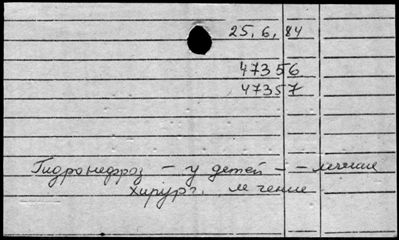 25, 6, 84
47356
47357
Гидронефроз - у детей - - лечение
хирург. лечение